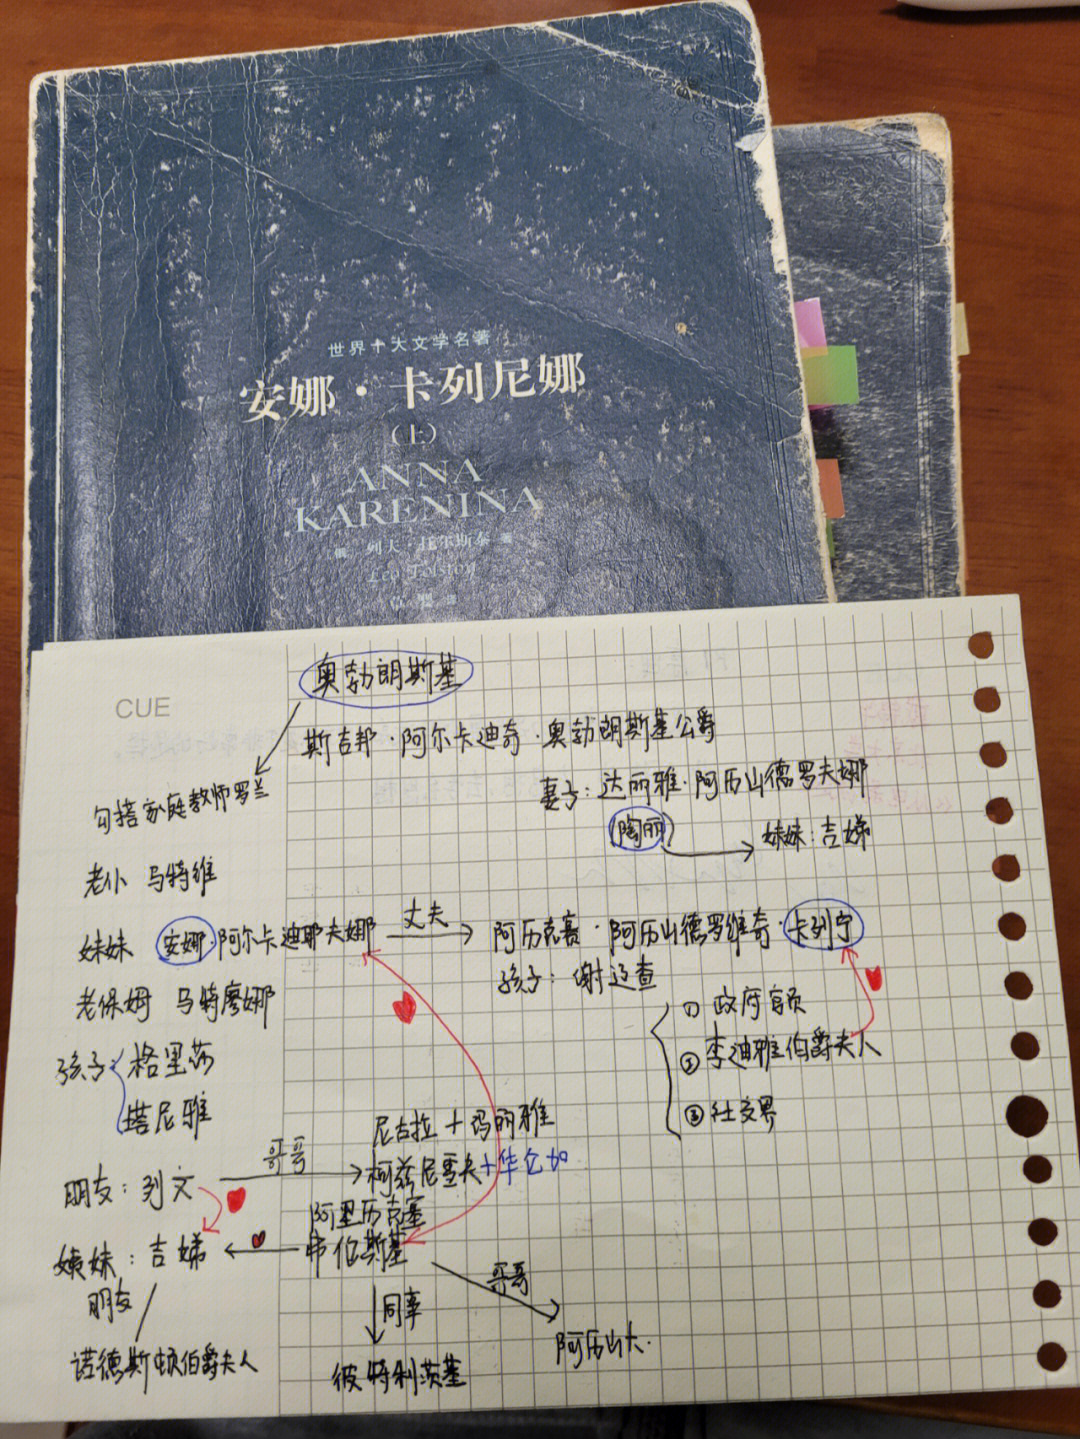 世界十大文学名著
安娜·卡列尼娜
(上)
ANNA
KARENINA
列夫·托尔斯泰 著
Leo Tolstoy
CUE
奥勃朗斯基
斯吉邦·阿尔卡迪奇·奥勃朗斯基公爵
勾搭家庭教师罗兰
妻子:达丽雅·阿历山德罗夫娜
(陶丽)
妹妹:吉娣
老仆 马特维
妹妹 安娜·阿尔卡迪耶夫娜
丈夫
阿历克赛·阿历山德罗维奇·卡列宁
孩子:谢辽查
老保姆 马特廖娜
① 政府官员
② 李迪雅伯爵夫人
③ 社交界
孩子
格里莎
塔尼雅
尼古拉+玛丽雅
朋友:列文
哥哥
柯兹尼雪夫+华仑加
阿里历克塞
姨妹:吉娣
弗伦斯基
哥哥
朋友
同事
阿历山大.
诺德斯顿伯爵夫人
彼特利茨基